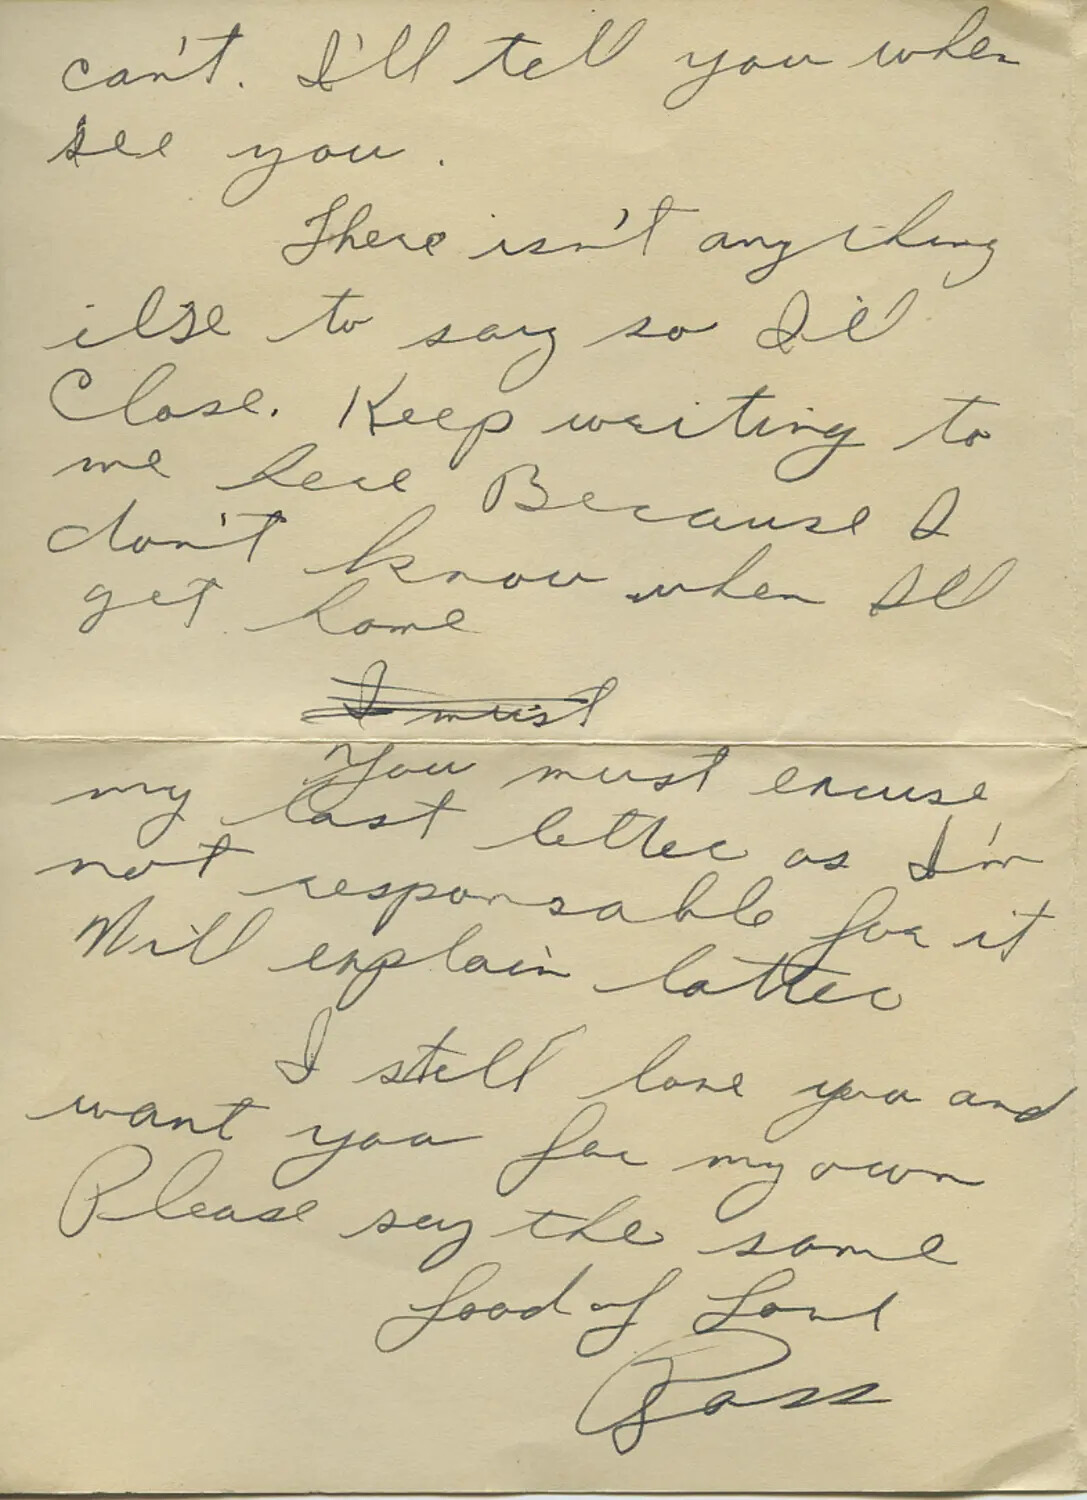 can't. I'll tell you when
see you.
There isn't anything
else to say so I'll
Close. Keep writing to
me here Because I
don't know when I'll
get home
I must
You must excuse
my last letter as I'm
not responsable for it
Will explain latter
I still love you and
want you for my own
Please say the same
of Love
Ross